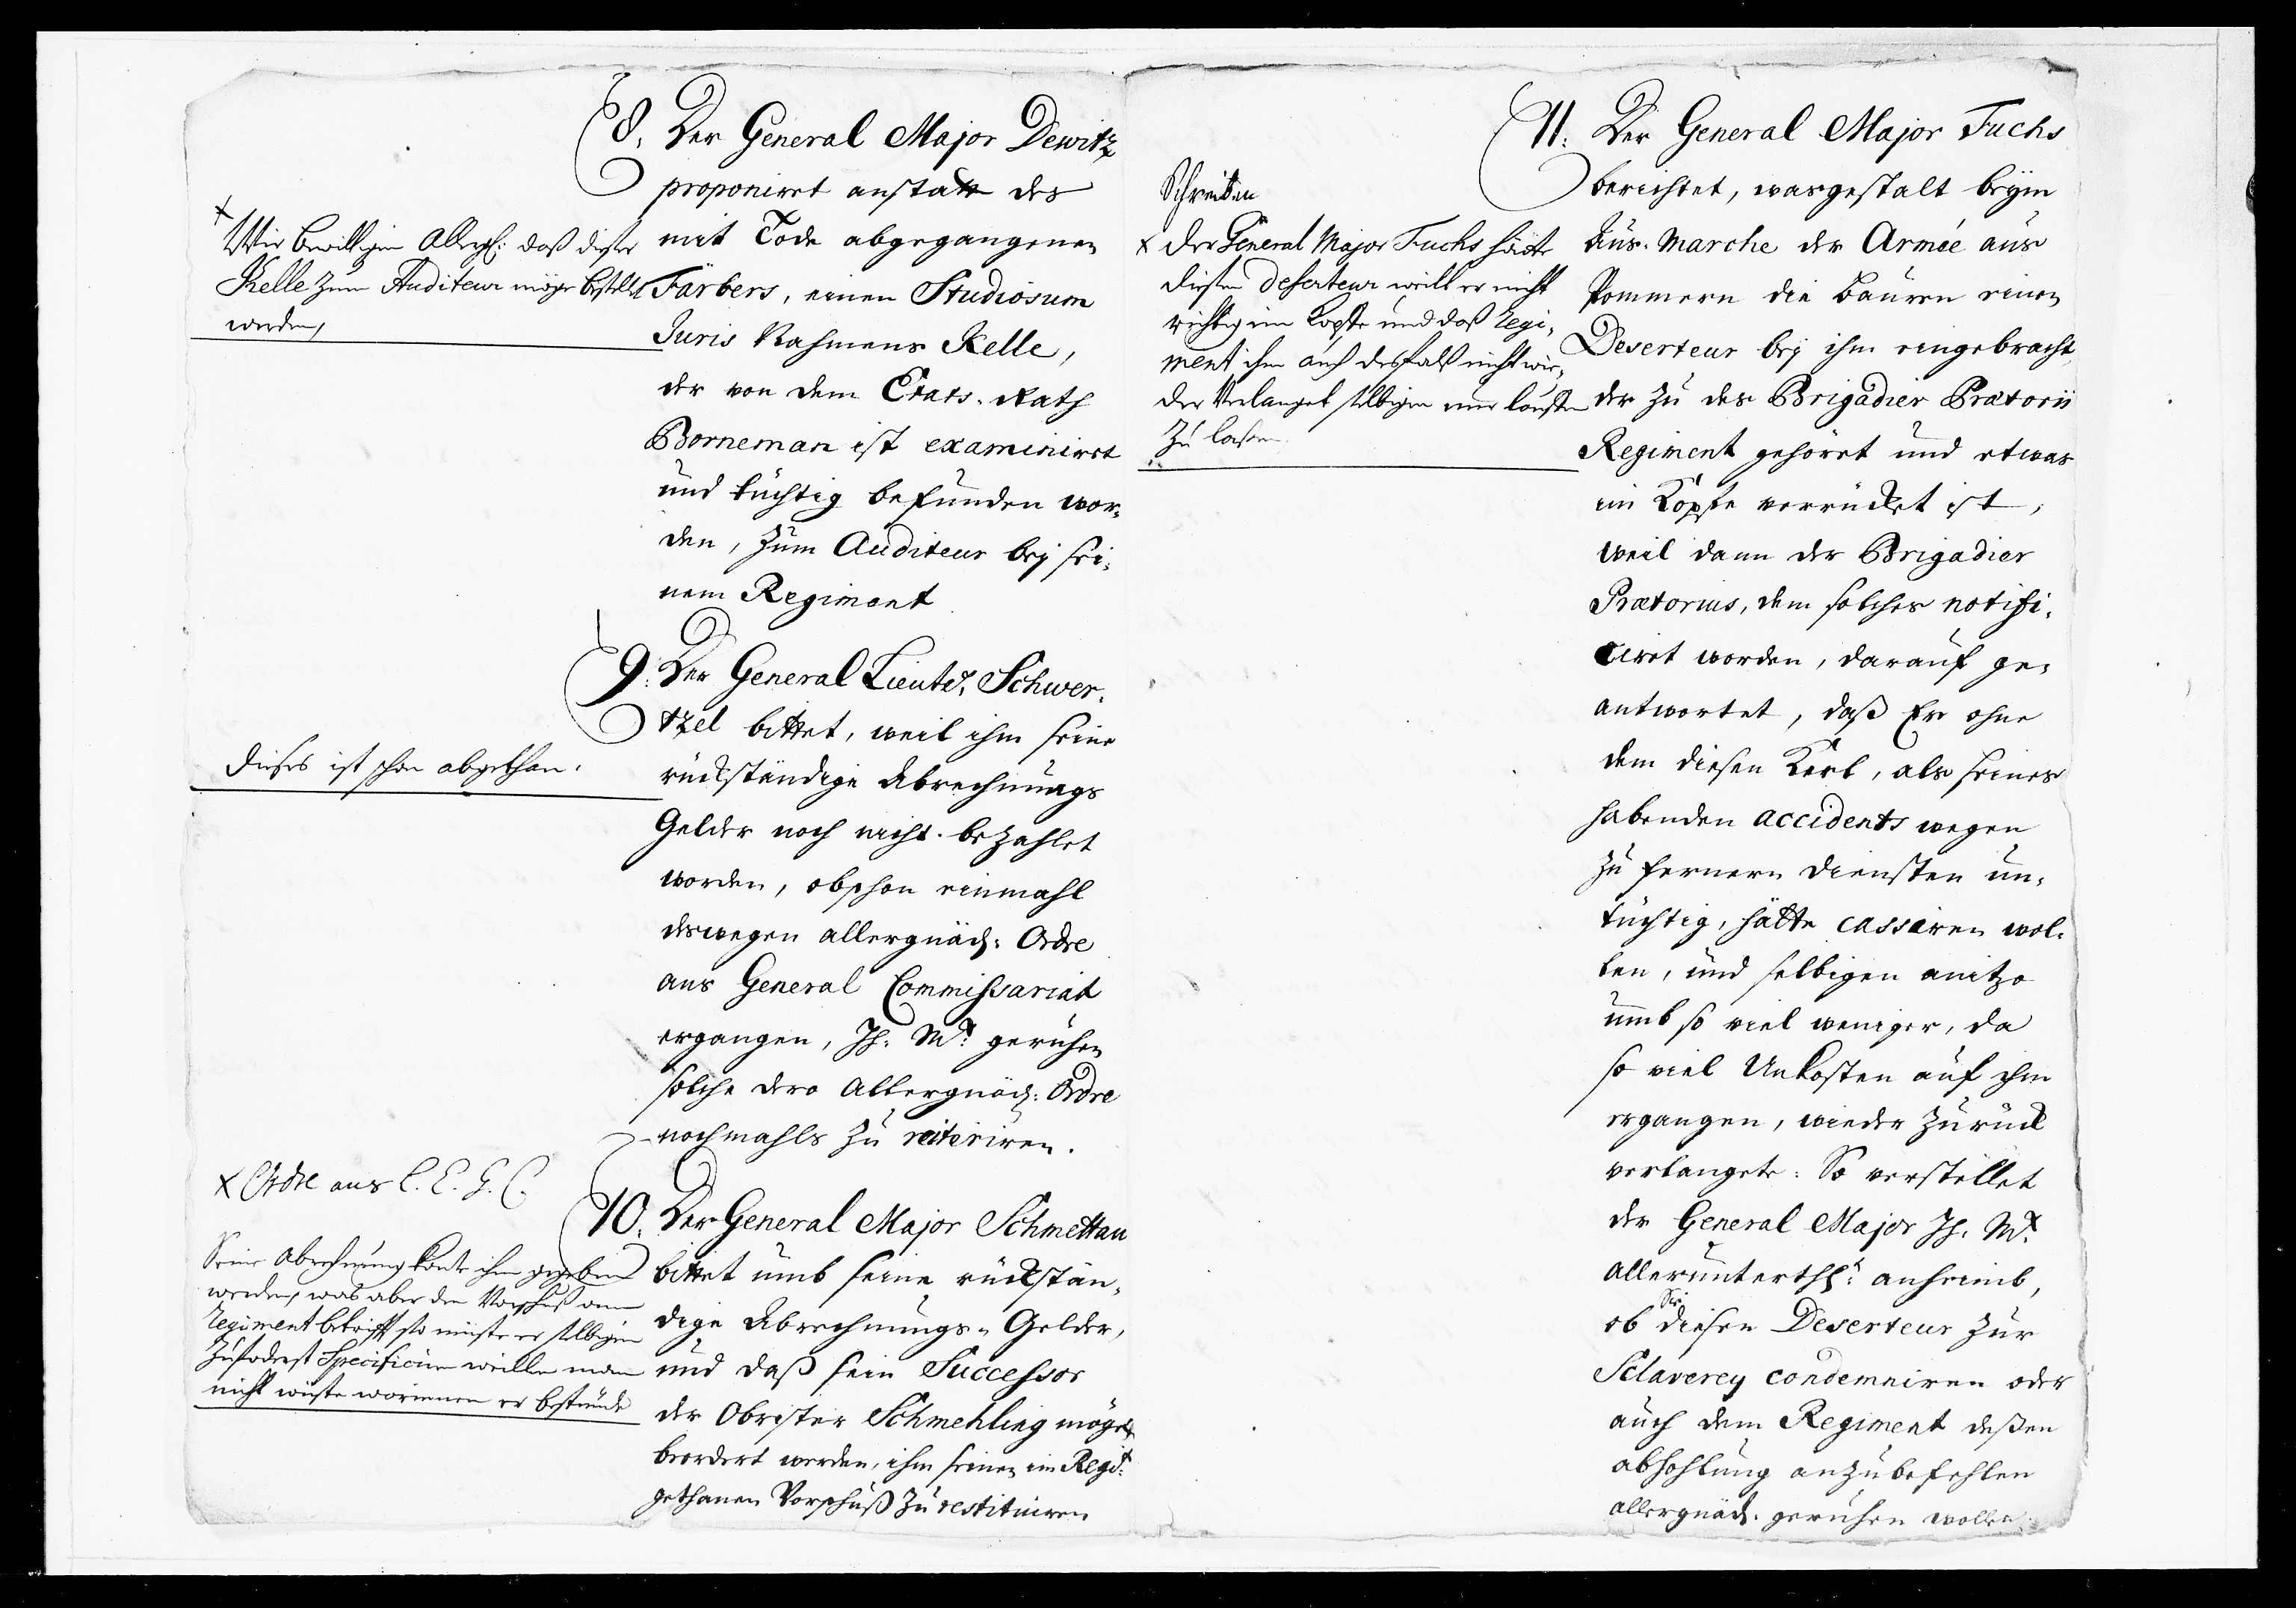 8. Der General Major Dewitz
proponiret anstatt des
mit Tode abgegangenen
Färbers, einen Studiosum
Juris Nahmens Kelle,
der von dem Etats-Rath
Borneman ist examiniret
und tüchtig befunden wor-
den, zum Auditeur bey sei-
nem Regiment
+
Wir bewilligen Allergn: daß dieser
Kelle zum Auditeur möge bestellet
werden,
9. Der General Lieut: Schwer-
tzel bittet, weil ihm seine
rückständige Abrechnungs
Gelder noch nicht bezahlet
worden, obschon einmahl
deswegen allergnäd: Ordre
ans General Commissariat
ergangen, Ih: Mt: geruhen
solche dero Allergnäd: Ordre
nochmahls zu reiteriren.
dieses ist schon abgethan.
10. Der General Major Schmettau
bittet umb seine rückstän-
dige Abrechnungs-Gelder,
und daß sein Successor
der Obrister Schmehling möge
beordert werden, ihm seinen im Regt:
gethanen Vorschuß zu restituiren
+ Ordre ans L. E. G. C.
Seine Abrechnung konte ihm gegeben
werden, was aber den Vorschuß vom
Regiment betrifft so müste er selbigen
zuforderst Specificiren weillen man
nicht wüste worinnen er bestünde
11. Der General Major Fuchs
berichtet, wasgestalt beym
Aus-Marche der Armée aus
Pommern die Bauren einen
Deserteur bey ihm eingebracht,
der zu des Brigadier Prætorii
Regiment gehöret und etwas
im Kopfe verrücket ist,
weil dann der Brigadier
Prætorius, dem solches notifi-
ciret worden, darauf ge-
antwortet, daß Er ohne
dem diesen Kerl, als seines
habenden accidents wegen
zu fernern Diensten un-
tüchtig, hätte cassiren wol-
len, und selbigen anitzo
umb so viel weniger, da
so viel Unkosten auf ihm
ergangen, wieder zurück
verlangete: So verstellet
der General Major Ih. Mt.
allerunterthgt: anheimb,
ob Sie diesen Deserteur zur
Sclaverey condemniren oder
auch dem Regiment deßen
abhohlung anzubefehlen
allergnäd. geruhen wollen.
Schreiben
+ der General Major Fuchs hätte
diesen Deserteur weill er nicht
richtig im Kopffe und daß Regi-
ment ihn auch desfalß nicht wie-
der Verlanget selbigen nur lauffen
zu laßen.